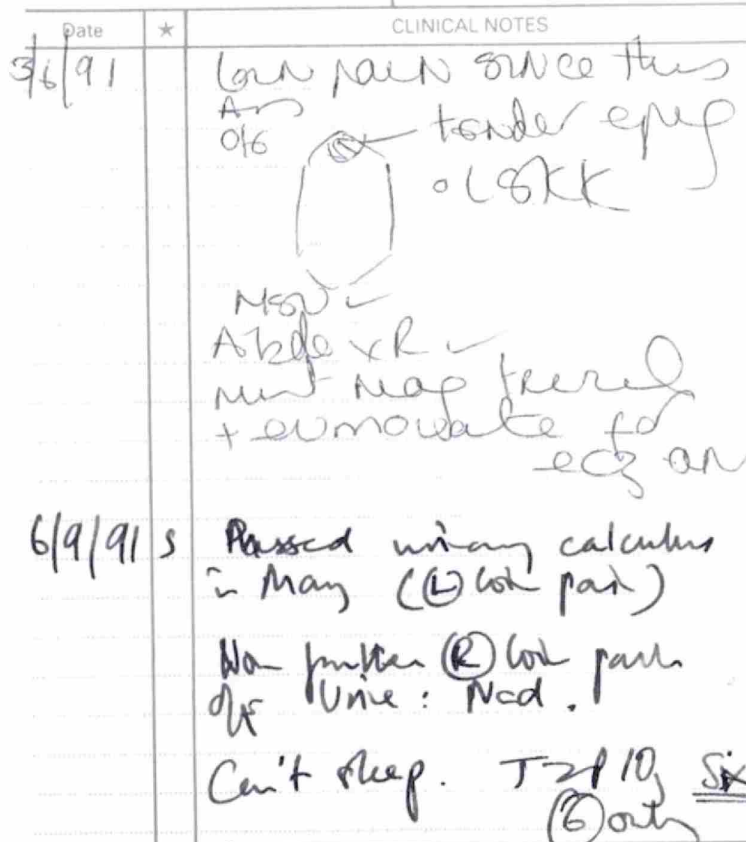 Date ★ CLINICAL NOTES
3/6/91 Loin pain since this
am
O/E tender epig
° LSKK
MSU ✓
Abdo XR ✓
+ eumovate for
6/9/91 S Passed urinary calculus
in May (Ⓛ loin pain)
Now further Ⓡ loin pain
O/E Urine: Nad.
Can't sleep. Six
⑥ only